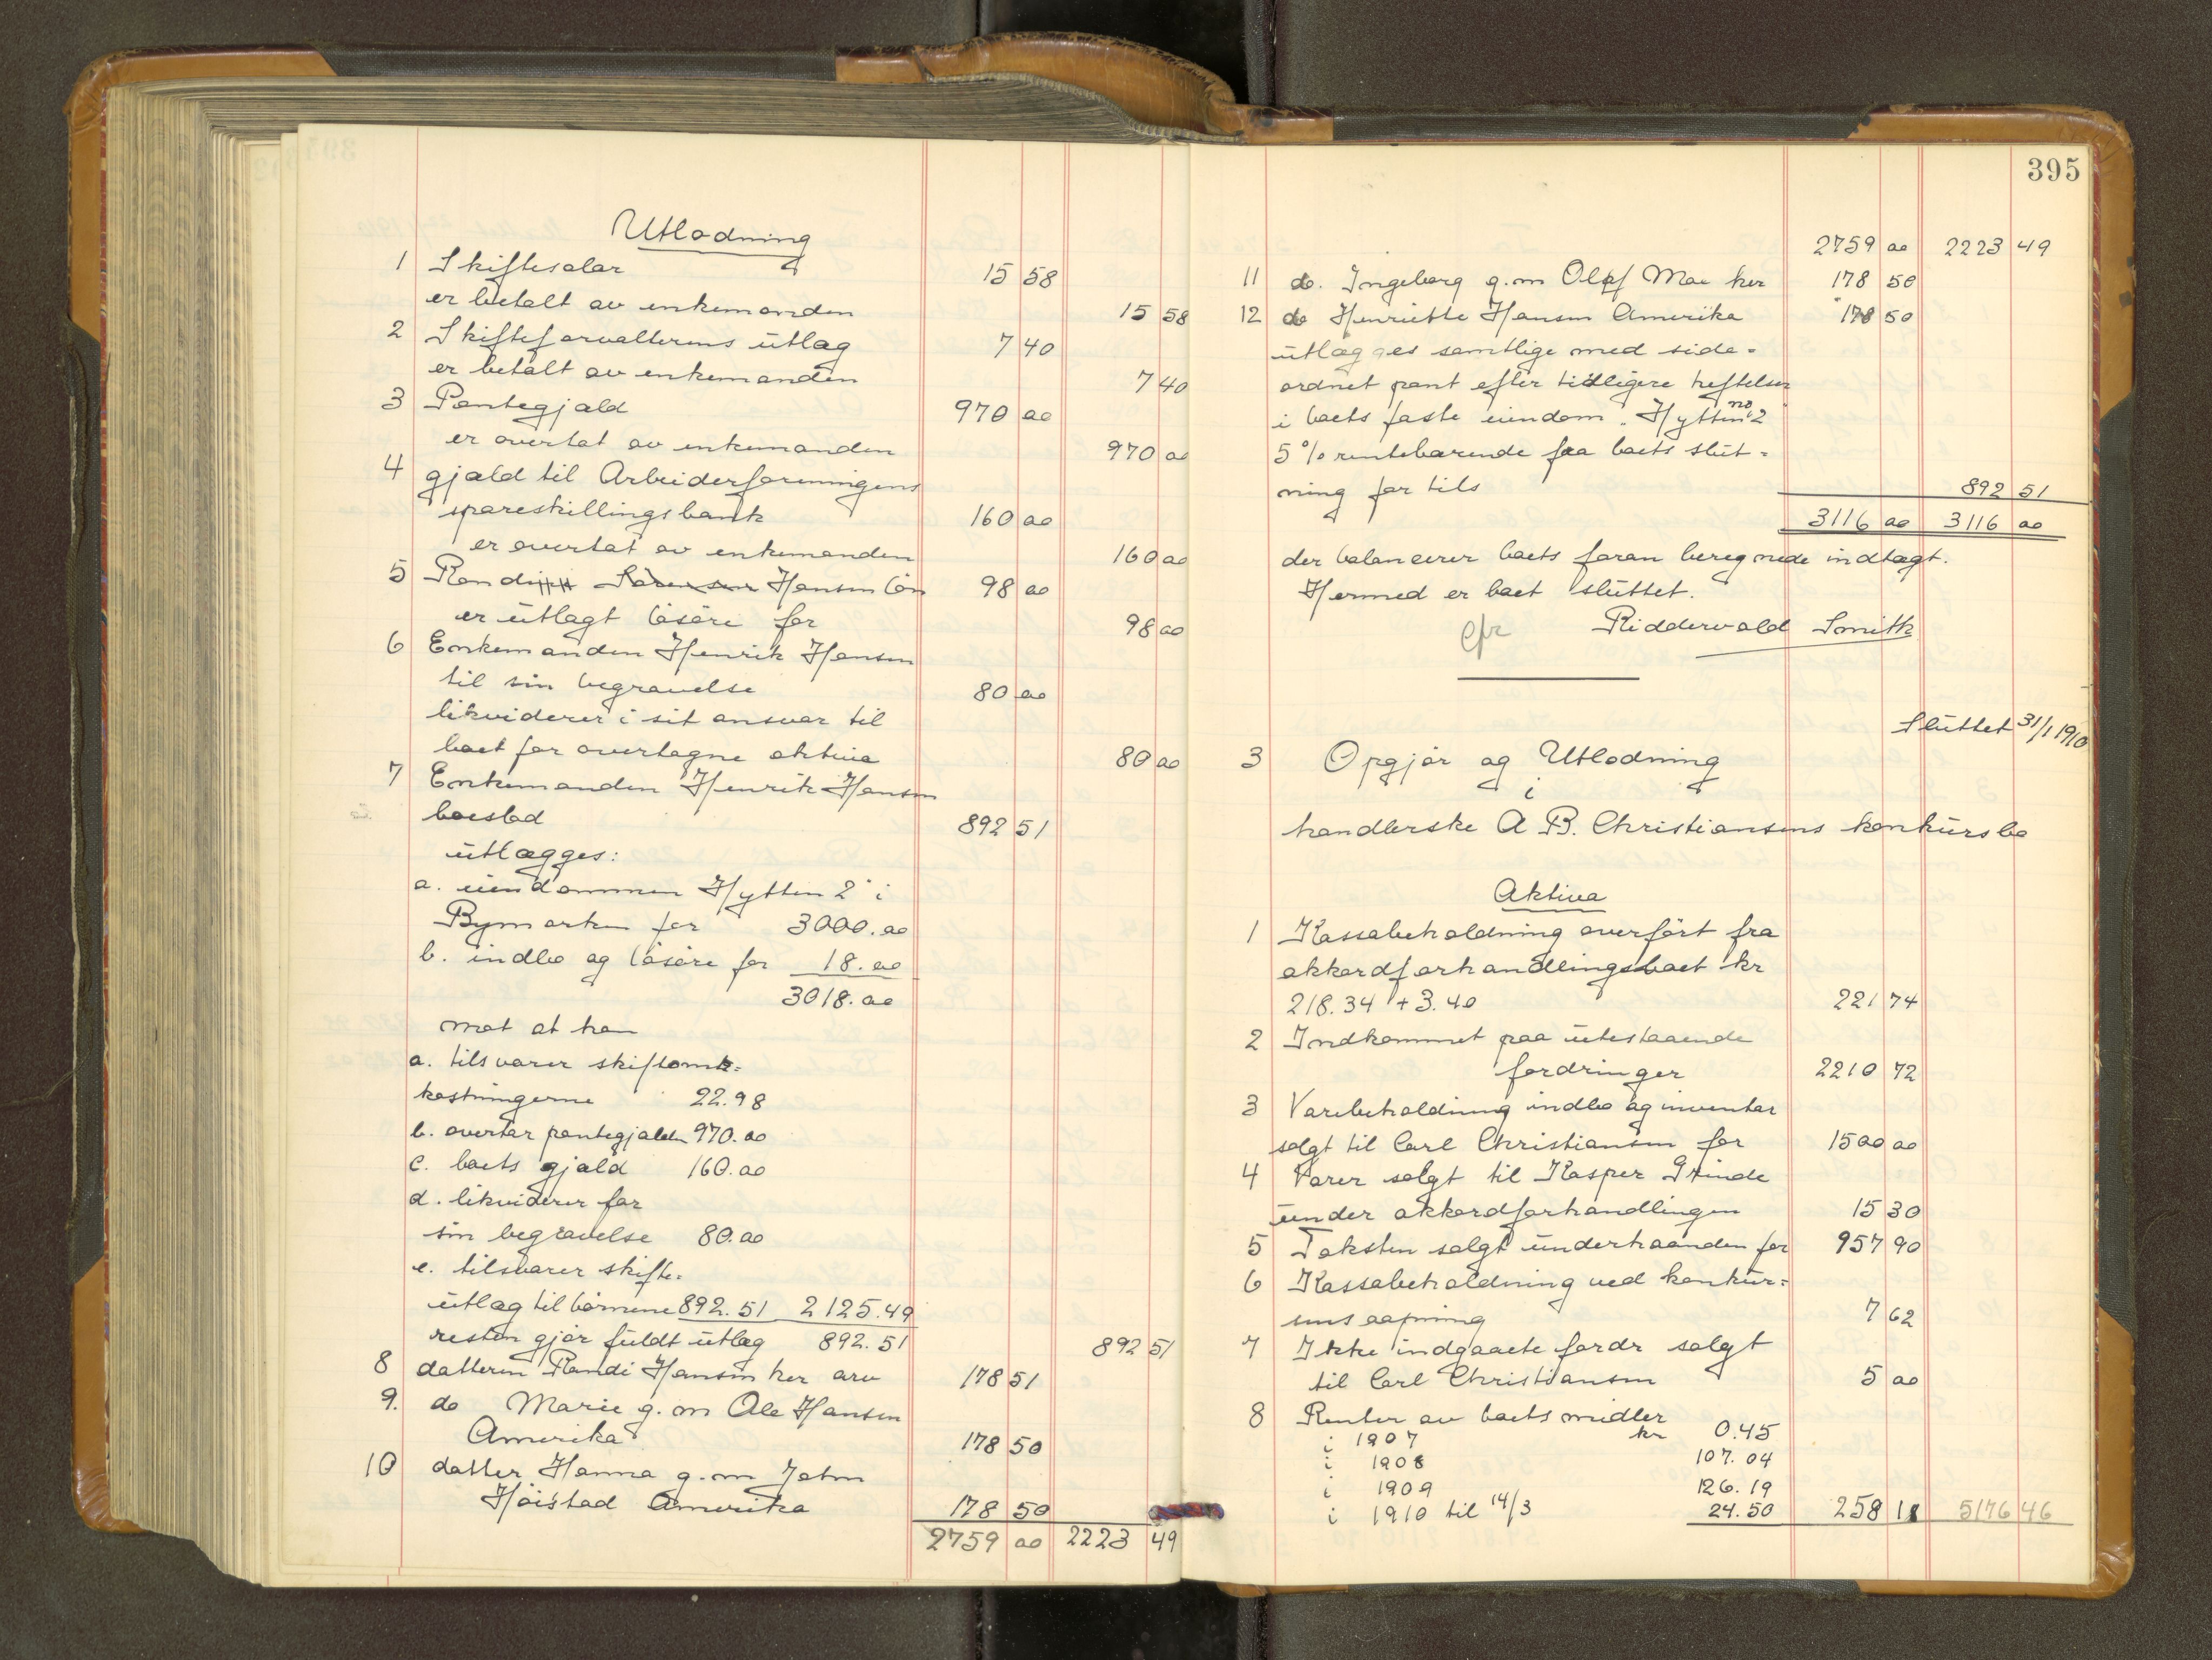 Utlodning
1 Skiftesalær 15 58
er betalt av enkemanden 15 58
2 Skifteforvalterens utlæg 7 40
er betalt av enkemanden 7 40
3 Pantegjæld 970 00
er overtat av enkemanden 970 00
4 gjæld til Arbeiderforeningens
spareskillingsbank 160 00
er overtat av enkemanden 160 00
5 Randi Hansen løn 98 00
er utlagt løsøre for 98 00
6 Enkemanden Henrik Hansen
til sin begravelse 80 00
likviderer i sit ansvar til
boet for overtagne aktiva 80 00
7 Enkemanden Henrik Hansen
boeslod 892 51
utlægges:
a. eiendommen Hytten 2" i
Bymarken for 3000.00
b. indbo og løsøre for 18.00
3018.00
mot at han
a. tilsvarer skifteomk=
kostningerne 22.98
b. overtar pantegjælden 970.00
c. boets gjæld 160.00
d. likviderer for
sin begravelse 80.00
e. tilsvarer skifte=
utlæg til børnene 892.51 2125.49
resten gjør fuldt utlæg 892.51 892 51
8 datteren Randi Hansen her arv 178 51
9. do Marie g. m Ole Hansen
Amerika 178 50
10 datter Hanna g. m John
Höistad Amerika 178 50
2759 00 2223 49
395
2759 00 2223 49
11 do. Ingeborg g. m Olaf Moe her 178 50
12 do Henriette Hansen Amerika 178 50
utlægges samtlige med side=
ordnet pant efter tidligere heftelser
i boets faste eiendom "Hytten no 2"
5 % rentebærende fra boets slut=
ning for tils 892 51
3116 00 3116 00
der balancerer boets foran beregnede indtægt.
Hermed er boet sluttet.
Riddervold Smith
cfr
Sluttet 31/1 1910
3 Opgjør og Utlodning
i
handlerske A B. Christiansens konkursbo
Aktiva
1 Kassabeholdning overført fra
akkordforhandlingsboet kr
218.34 + 3.40 221 74
2 Indkommet paa utestaaende
fordringer 2210 72
3 Varebeholdning indbo og inventar
solgt til Carl Christiansen for 1500 00
4 Varer solgt til Kasper Grinde
under akkordforhandlingen 15 30
5 Taksten solgt underhaanden for 957 90
6 Kassabeholdning ved konkur=
sens aapning 7 62
7 Ikke indgaaete fordr solgt
til Carl Christiansen 5 00
8 Renter av boets midler
i 1907 kr 0.45
i 1908 107.04
i 1909 126.19
i 1910 til 14/3 24.50 258 18 5176 46